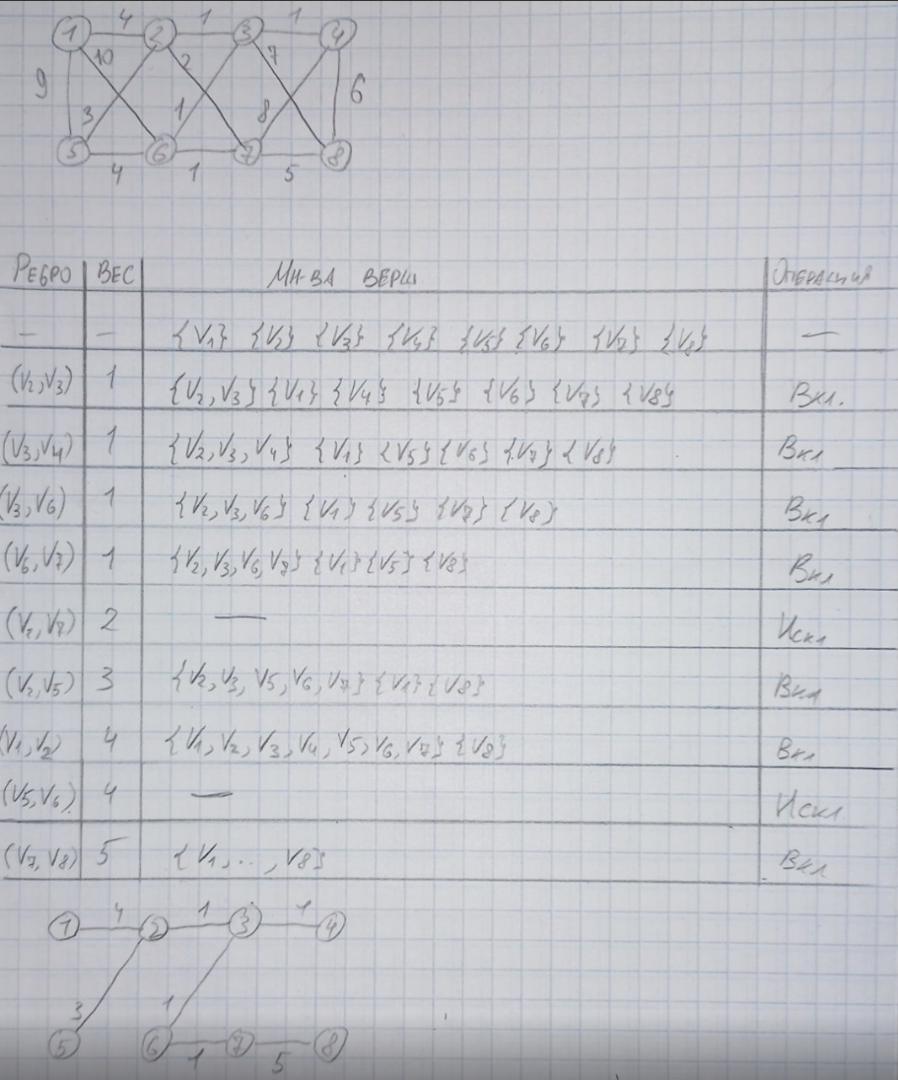 4 1 1
1 2 3 4
10 2 7
9 6
3 1 8
5 6 7 8
4 1 5
РЕБРО ВЕС МН-ВА ВЕРШ ОПЕРАЦИЯ
— — {V1} {V2} {V3} {V4} {V5} {V6} {V7} {V8} —
(V2,V3) 1 {V2,V3} {V1} {V4} {V5} {V6} {V7} {V8} Вкл.
(V3,V4) 1 {V2,V3,V4} {V1} {V5} {V6} {V7} {V8} Вкл
(V3,V6) 1 {V2,V3,V6} {V1} {V5} {V7} {V8} Вкл
(V6,V7) 1 {V2,V3,V6,V7} {V1} {V5} {V8} Вкл
(V2,V7) 2 — Искл
(V2,V5) 3 {V2,V3,V5,V6,V7} {V1} {V8} Вкл
(V1,V2) 4 {V1,V2,V3,V4,V5,V6,V7} {V8} Вкл
(V5,V6) 4 — Искл
(V7,V8) 5 {V1,..,V8} Вкл
4 1 1
1 2 3 4
3 1
5 6 7 8
1 5